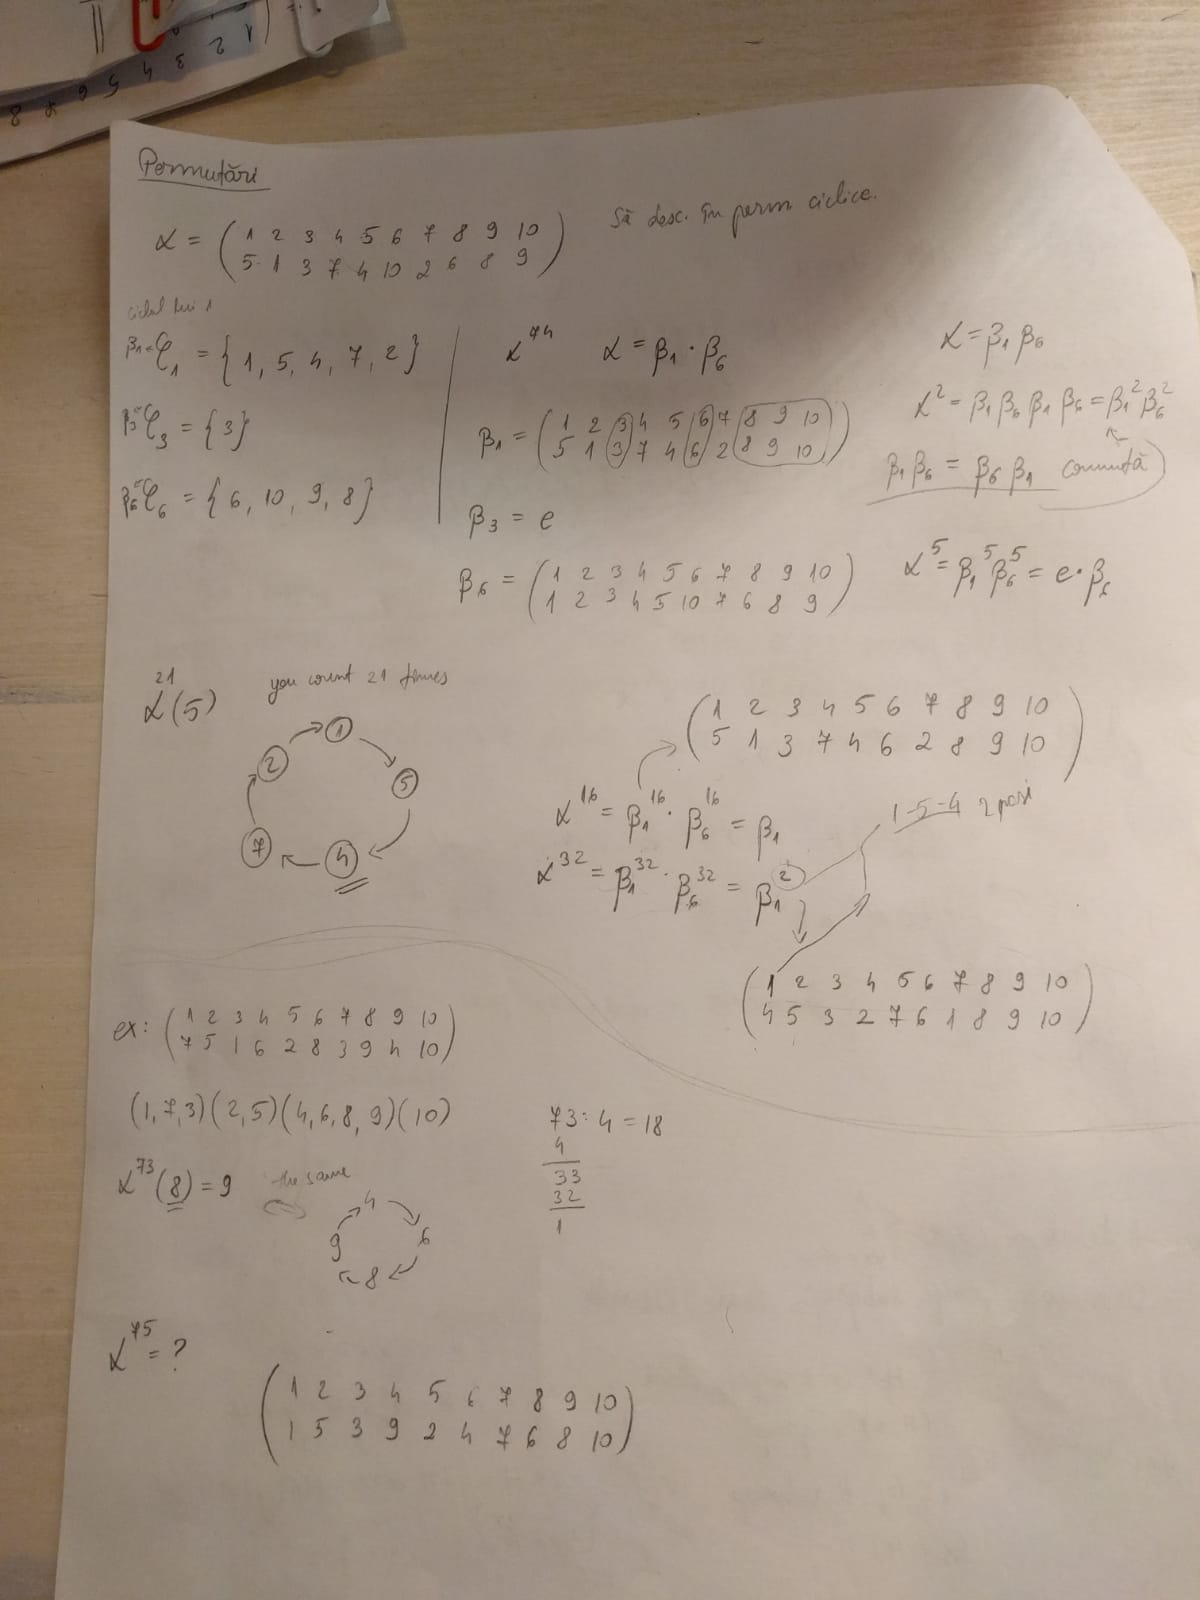 1 2 3 4 5 6 7 8
Permutări
α = ( 1 2 3 4 5 6 7 8 9 10 )
( 5 1 3 7 4 10 2 6 8 9 )
Să desc. în perm ciclice.
ciclul lui 1
β1= C1 = {1, 5, 4, 7, 2}
β3= C3 = {3}
β6= C6 = {6, 10, 9, 8}
α^74 α = β1 · β6
β1 = ( 1 2 3 4 5 6 7 8 9 10 )
( 5 1 3 7 4 6 2 8 9 10 )
β3 = e
β6 = ( 1 2 3 4 5 6 7 8 9 10 )
( 1 2 3 4 5 10 7 6 8 9 )
α = β1 β6
α^2 = β1 β6 β1 β6 = β1^2 β6^2
β1 β6 = β6 β1 comută
α^5 = β1^5 β6^5 = e · β6
α^21(5) you count 21 times
1
2
5
7
4
( 1 2 3 4 5 6 7 8 9 10 )
( 5 1 3 7 4 6 2 8 9 10 )
α^16 = β1^16 · β6^16 = β1
1-5-4 2 pași
α^32 = β1^32 · β6^32 = β1^2
( 1 2 3 4 5 6 7 8 9 10 )
( 4 5 3 2 7 6 1 8 9 10 )
ex: ( 1 2 3 4 5 6 7 8 9 10 )
( 7 5 1 6 2 8 3 9 4 10 )
(1,7,3)(2,5)(4,6,8,9)(10)
73 : 4 = 18
4
33
32
1
α^73(8) = 9 the same
4
9 6
8
α^75 = ?
( 1 2 3 4 5 6 7 8 9 10 )
( 1 5 3 9 2 4 7 6 8 10 )